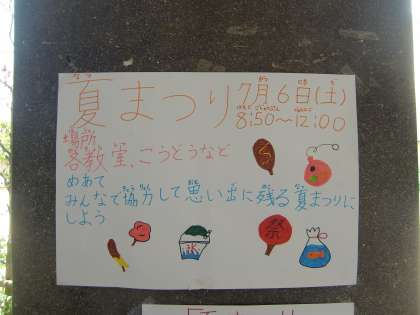 夏まつり 7月6日(土)
8:50〜12:00
場所
各教室、こうどうなど
めあて
みんなで協力して思い出に残る夏まつりに
しよう
うちわ
祭
氷